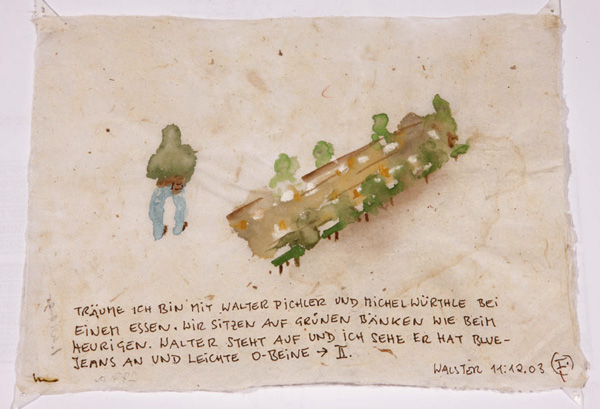 TRÄUME ICH BIN MIT WALTER PICHLER UND MICHEL WÜRTHLE BEI
EINEM ESSEN. WIR SITZEN AUF GRÜNEN BÄNKEN WIE BEIM
HEURIGEN. WALTER STEHT AUF UND ICH SEHE ER HAT BLUE-
JEANS AN UND LEICHTE O-BEINE → II.
11.12.03 I